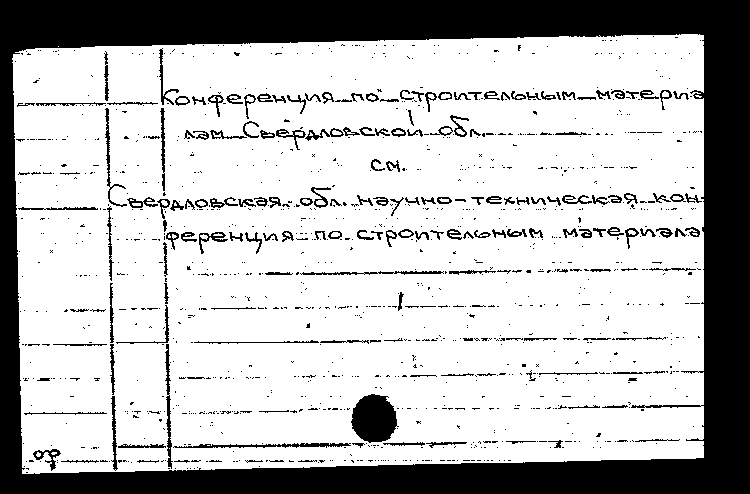 Конференция по строительным материа
лам Свердловской обл.
см.
Свердловская обл. научно-техническая кон-
ференция по строительным материала
ор